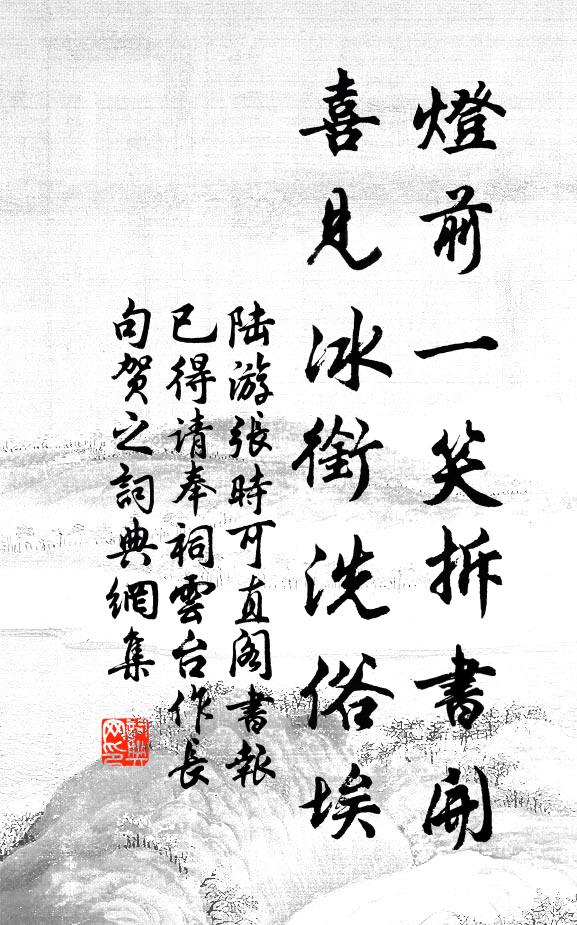 燈前一笑拆書開
喜見冰銜洗俗埃
陆游張時可直阁書報
已得请奉祠雲台作長
句賀之詞典網集